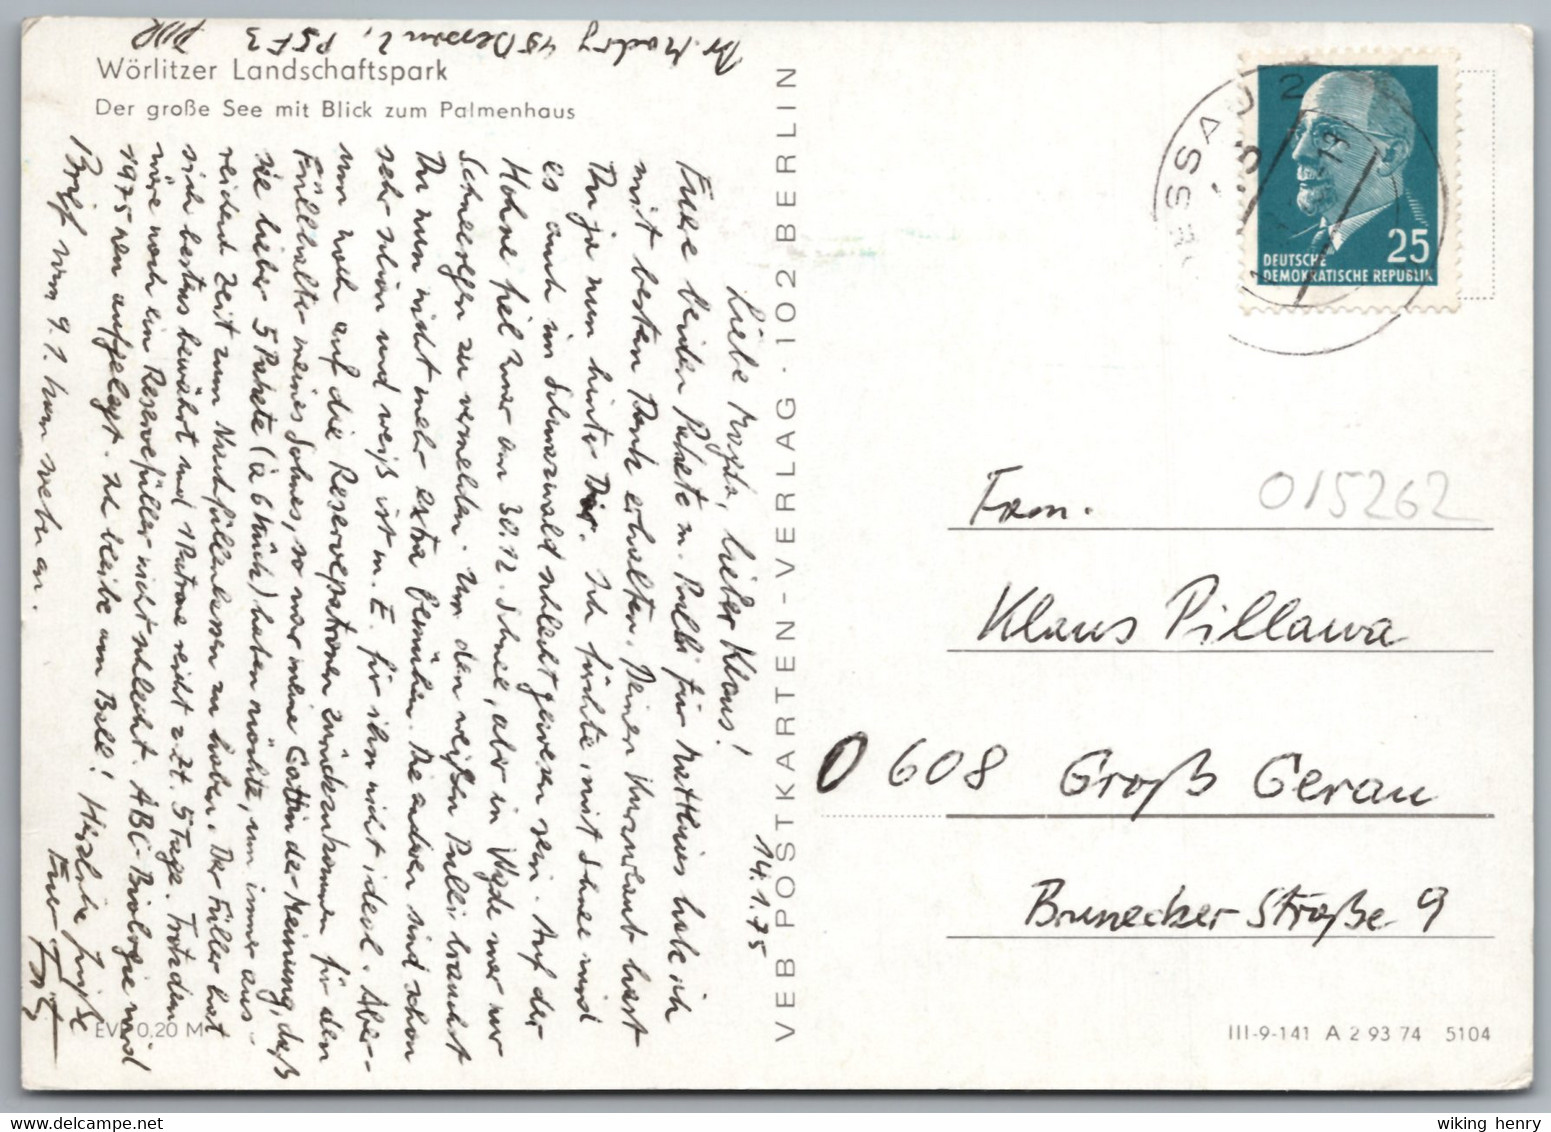 Dr. Madry 45 Dessau 2, PSF 3
DDR
Wörlitzer Landschaftspark
Der große See mit Blick zum Palmenhaus
14.1.75
Liebe Magda, lieber Klaus!
Eure beiden Pakete m. Pulli für Matthias habe ich
mit bestem Dank erhalten. Deinen Kuraufenthalt hast
Du ja nun hinter Dir. Ich fürchte, mit Schnee wird
es auch im Schwarzwald schlecht gewesen sein. Auf der
Höhe fiel zwar am 30.12. Schnee, aber in Wgde war nur
Schneeregen zu vermelden. Um den weißen Pulli brauchst
Du nun nicht mehr extra bemühen. Die andren sind schon
sehr schön und weiß ist m. E. für ihn nicht ideal. Aber
nun noch auf die Reservepatronen zurückzukommen für den
Füllhalter meines Sohnes, so war meine Gattin der Meinung, daß
sie lieber 5 Pakete (à 6 Stück) haben möchte, um immer aus-
reichend Zeit zum Nachfüllenlassen zu haben. Der Füller hat
sich bestens bewährt und 1 Patrone reicht z. Zt. 5 Tage. Trotzdem
wäre noch ein Reservefüller nicht schlecht. ABC-Biologie wird
1975 neu aufgelegt. Ich bleibe am Ball! Herzliche Grüße
Brief vom 9.1. kam eben an. Euer
EVP 0,20 M
VEB POSTKARTEN-VERLAG · 102 BERLIN
DESSAU 2
25
DEUTSCHE
DEMOKRATISCHE REPUBLIK
015262
Fam.
Klaus Pillawa
D 608 Groß Gerau
Brunecker Straße 9
III-9-141 A 2 93 74 5104
wiking henry